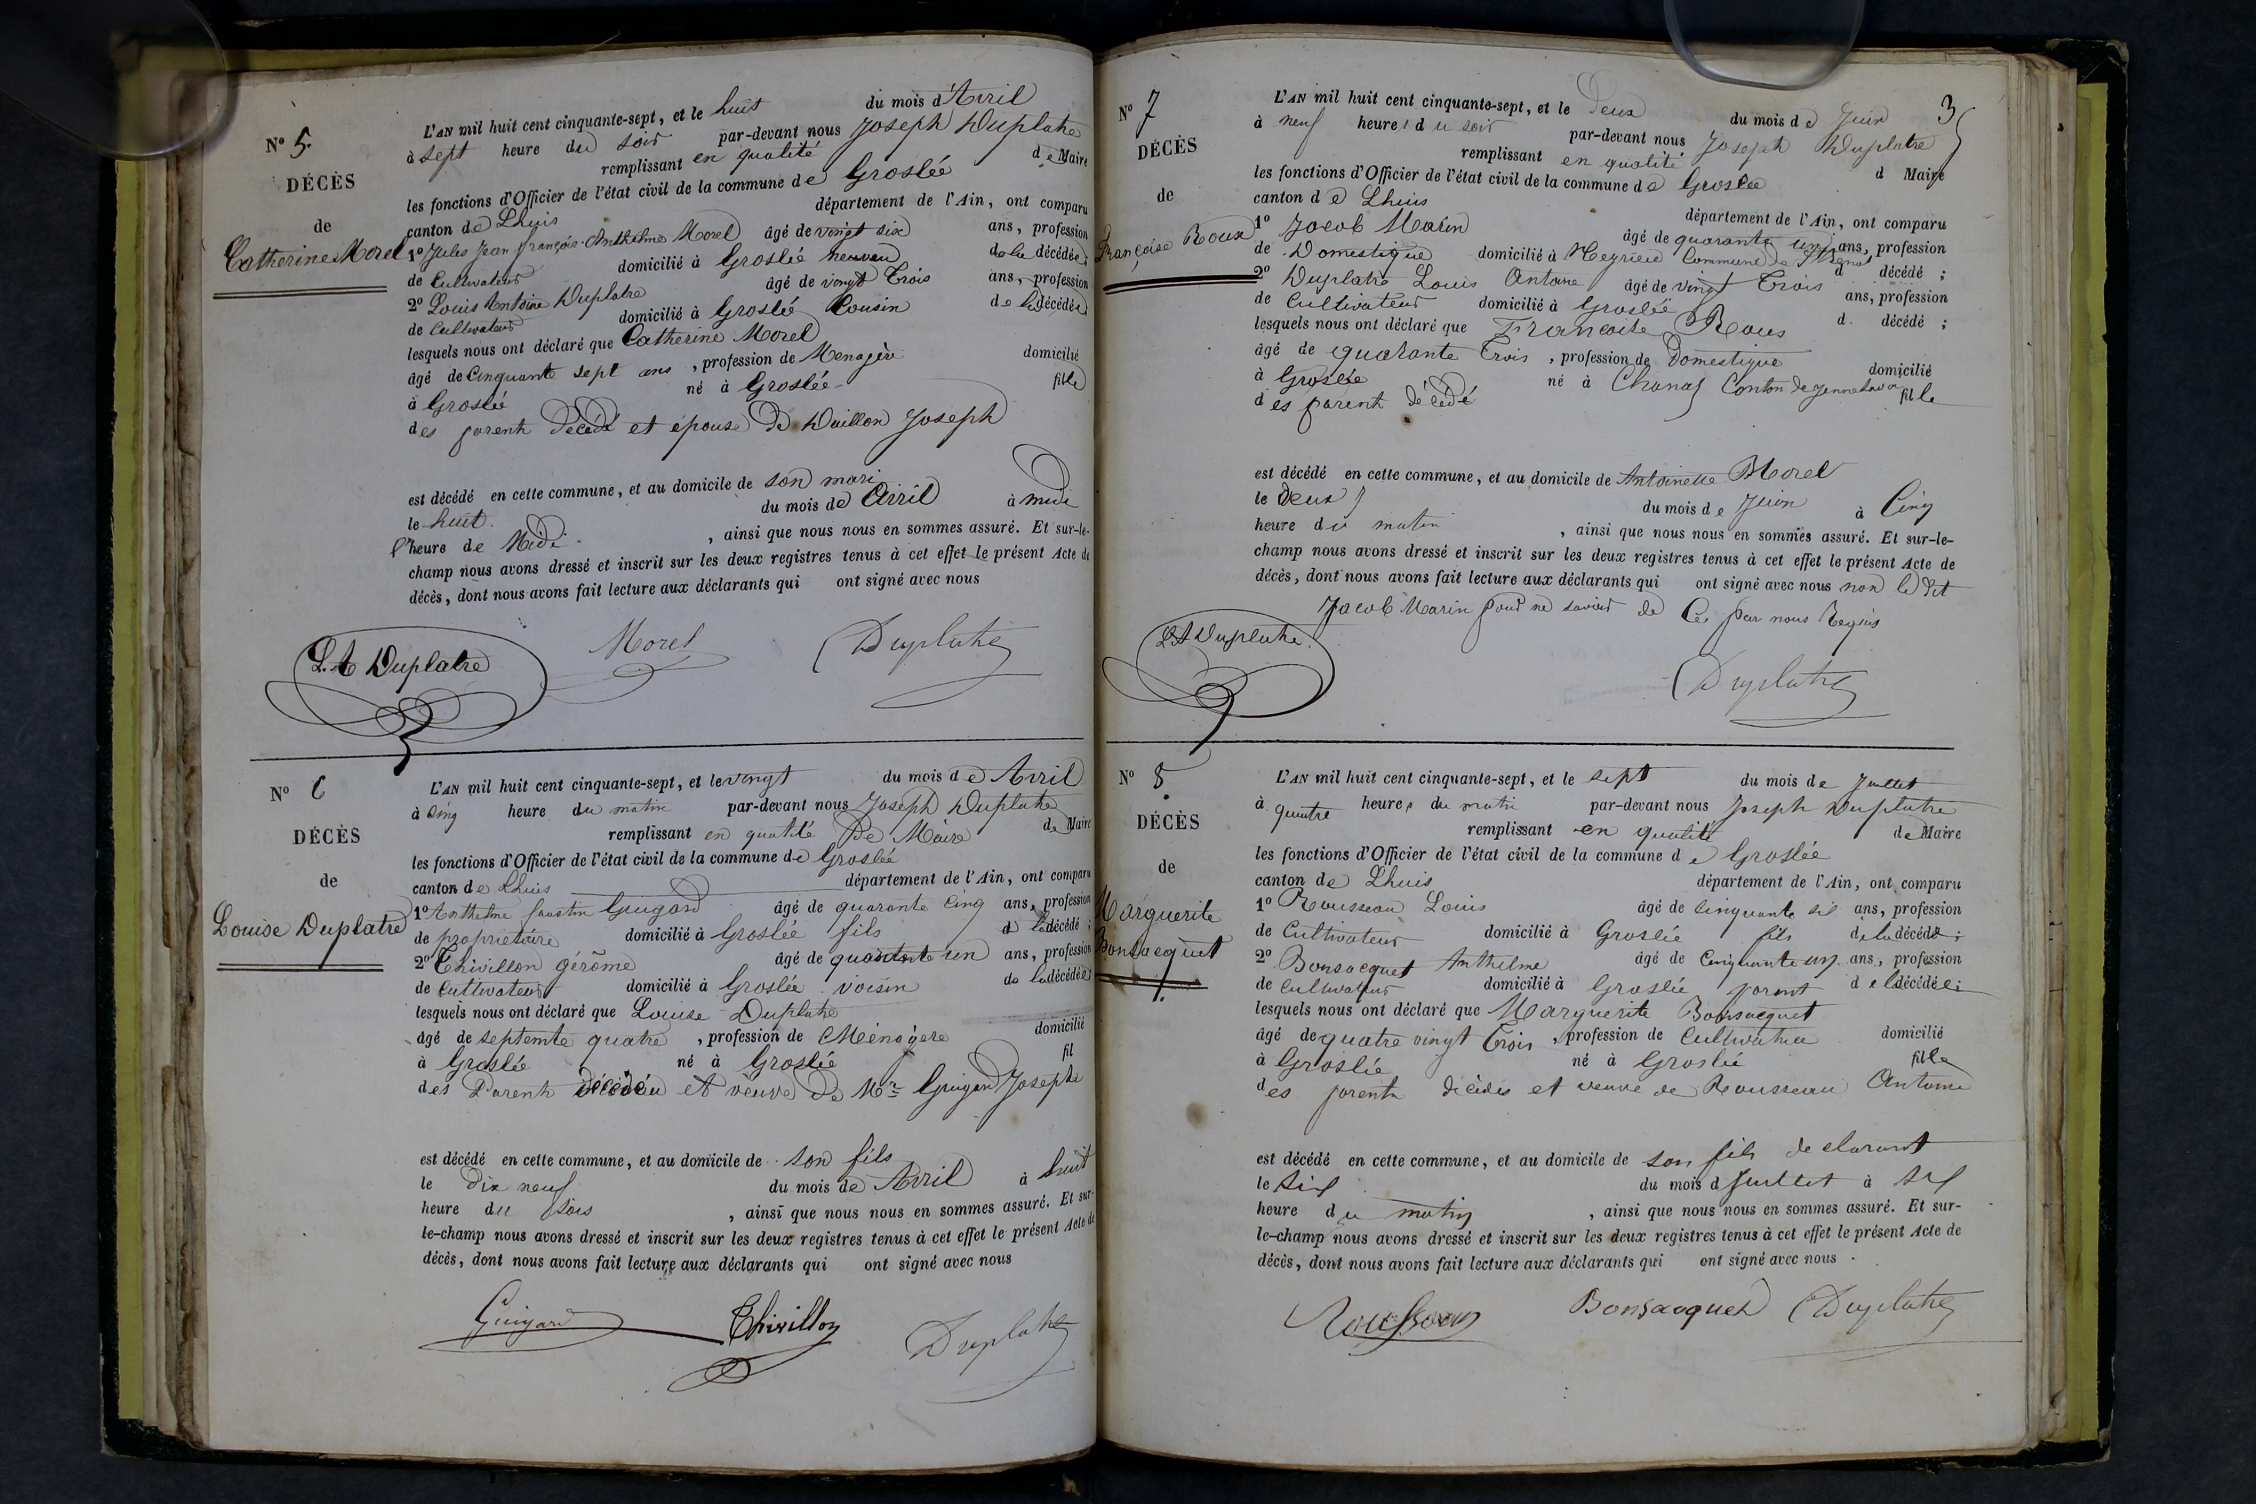 N° 5.
DÉCÈS
de
Catherine Morel
L'AN mil huit cent cinquante-sept, et le huit du mois d'Avril
à sept heure du soir par-devant nous Joseph Duplatre
remplissant en qualité de Maire
les fonctions d'Officier de l'état civil de la commune de Groslée
canton de Lhuis département de l'Ain, ont comparu
1° Jules Jean françois Anthelme Morel âgé de vingt six ans, profession
de Cultivateur domicilié à Groslée neuveu de la décédée
2° Louis Antoine Duplatre âgé de vingt Trois ans, profession
de Cultivateur domicilié à Groslée Cousin de la décédée
lesquels nous ont déclaré que Catherine Morel
âgé de Cinquante sept ans, profession de Menagère domicilié
à Groslée né à Groslée fille
des parents décédé et épouse de Duillon Joseph
est décédé en cette commune, et au domicile de son mari
le huit. du mois de Avril à midi
l'heure de Midi, ainsi que nous nous en sommes assuré. Et sur-le-
champ nous avons dressé et inscrit sur les deux registres tenus à cet effet le présent Acte de
décès, dont nous avons fait lecture aux déclarants qui ont signé avec nous
L. A Duplatre Morel Duplatre
N° 6
DÉCÈS
de
Louise Duplatre
L'AN mil huit cent cinquante-sept, et le vingt du mois de Avril
à cinq heure du matin par-devant nous Joseph Duplatre
remplissant en qualité De Maire de Maire
les fonctions d'Officier de l'état civil de la commune de Groslée
canton de Lhuis département de l'Ain, ont comparu
1° Anthelme faustin Guigard âgé de quarante cinq ans, profession
de propriétaire domicilié à Groslée fils d la décédé ;
2° Thivillon gérôme âgé de quarante un ans, profession
de Cultivateur domicilié à Groslée voisin de la décédée
lesquels nous ont déclaré que Louise Duplatre
âgé de septente quatre, profession de Ménagère domicilié
à Groslée né à Groslée fil
des Parents décédéu et veuve de Mr Guigard Josephe
est décédé en cette commune, et au domicile de son fils
le dix neuf du mois de Avril à huit
heure du soir, ainsi que nous nous en sommes assuré. Et sur-
le-champ nous avons dressé et inscrit sur les deux registres tenus à cet effet le présent Acte de
décès, dont nous avons fait lecture aux déclarants qui ont signé avec nous
Guigard Thivillon Duplatre
3
N° 7
DÉCÈS
de
Françoise Roux
L'AN mil huit cent cinquante-sept, et le Deux du mois de Juin
à neuf heures du soir par-devant nous Joseph Duplatre
remplissant en qualité d Maire
les fonctions d'Officier de l'état civil de la commune de Groslée
canton de Lhuis département de l'Ain, ont comparu
1° Jacob Marin âgé de quarante un ans, profession
de Domestique domicilié à Meyrieu Commune de d décédé ;
2° Duplatre Louis Antoine âgé de vingt Trois ans, profession
de Cultivateur domicilié à Groslée d. décédé ;
lesquels nous ont déclaré que Francoise Roux
âgé de quarante Trois, profession de Domestique domicilié
à Groslée né à Chanaz Conton de yenne fille
des parents décédé
est décédé en cette commune, et au domicile de Antoinette Morel
le Deux du mois de Juin à Cinq
heure du matin, ainsi que nous nous en sommes assuré. Et sur-le-
champ nous avons dressé et inscrit sur les deux registres tenus à cet effet le présent Acte de
décès, dont nous avons fait lecture aux déclarants qui ont signé avec nous non le dit
Jacob Marin pour ne savoir de Ce par nous Requis
L A Duplatre Duplatre
N° 8.
DÉCÈS
de
Marguerite
Bonsacquet
L'AN mil huit cent cinquante-sept, et le sept du mois de Juillet
à quatre heures du matin par-devant nous Joseph Duplatre
remplissant en qualité de Maire
les fonctions d'Officier de l'état civil de la commune de Groslée
canton de Lhuis département de l'Ain, ont comparu
1° Rousseau Louis âgé de cinquante six ans, profession
de Cultivateur domicilié à Groslée fils de la décédé ;
2° Bonsacquet Anthelme âgé de Cinquante un ans, profession
de Cultivateur domicilié à Groslée parent de la décédée ;
lesquels nous ont déclaré que Marguerite Bonsacquet
âgé de quatre vingt Trois, profession de Cultivatrice domicilié
à Groslée né à Groslée fille
des parents décédés et veuve de Rousseau Antoine
est décédé en cette commune, et au domicile de son fils declarant
le six du mois d Juillet à six
heure du matin, ainsi que nous nous en sommes assuré. Et sur-
le-champ nous avons dressé et inscrit sur les deux registres tenus à cet effet le présent Acte de
décès, dont nous avons fait lecture aux déclarants qui ont signé avec nous
Rousseau Bonsacquet Duplatre